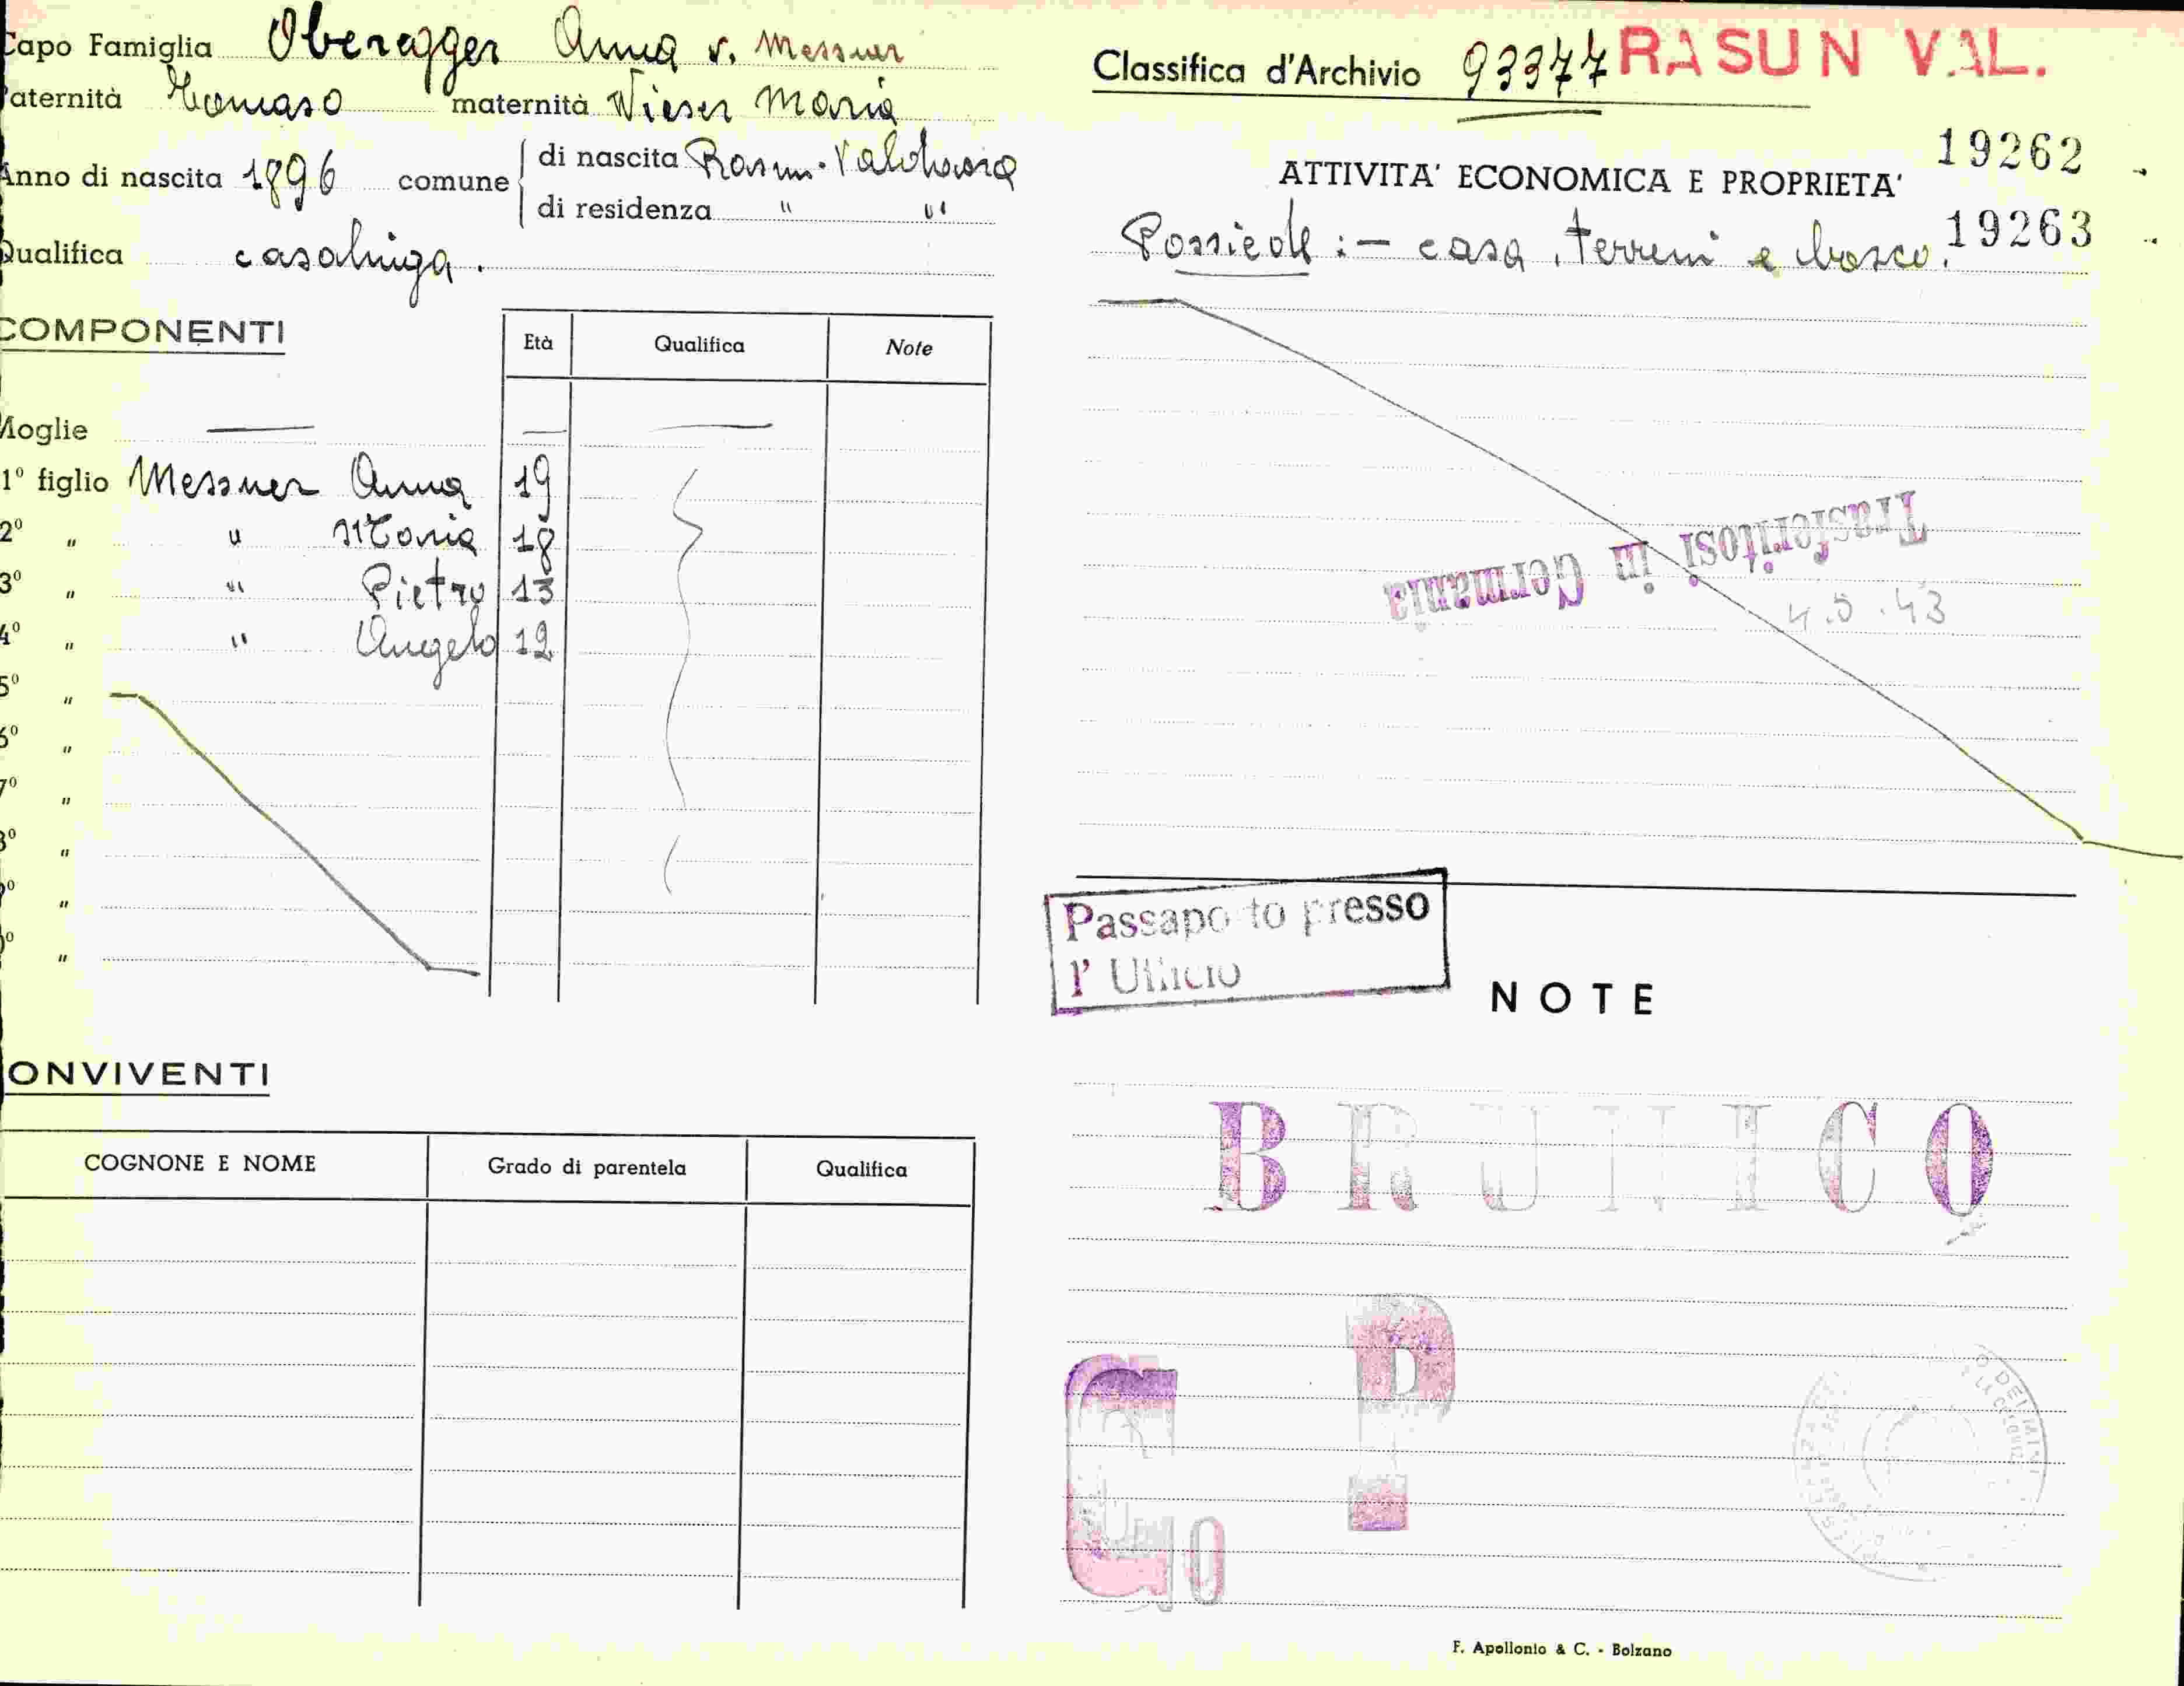 Capo Famiglia Oberegger Anna v. Messner
aternità Tomaso maternità Wieser Maria
Anno di nascita 1896 comune di nascita Rasun-Valdaora
di residenza " "
Qualifica casalinga.
COMPONENTI
Età Qualifica Note
Moglie
1º figlio Messner Anna 19
2º " " Maria 18
3º " " Pietro 13
4º " " Angelo 12
5º "
6º "
7º "
8º "
º "
º "
ONVIVENTI
COGNONE E NOME Grado di parentela Qualifica
Classifica d'Archivio 93377 RASUN VAL.
19262
ATTIVITA' ECONOMICA E PROPRIETA'
19263
Possiede :- casa, terreni e bosco.
Trasferitosi in Germania
4.5.43
Passapo to presso
l' Ufficio
NOTE
BRUNICO
P
G
F. Apollonio & C. - Bolzano